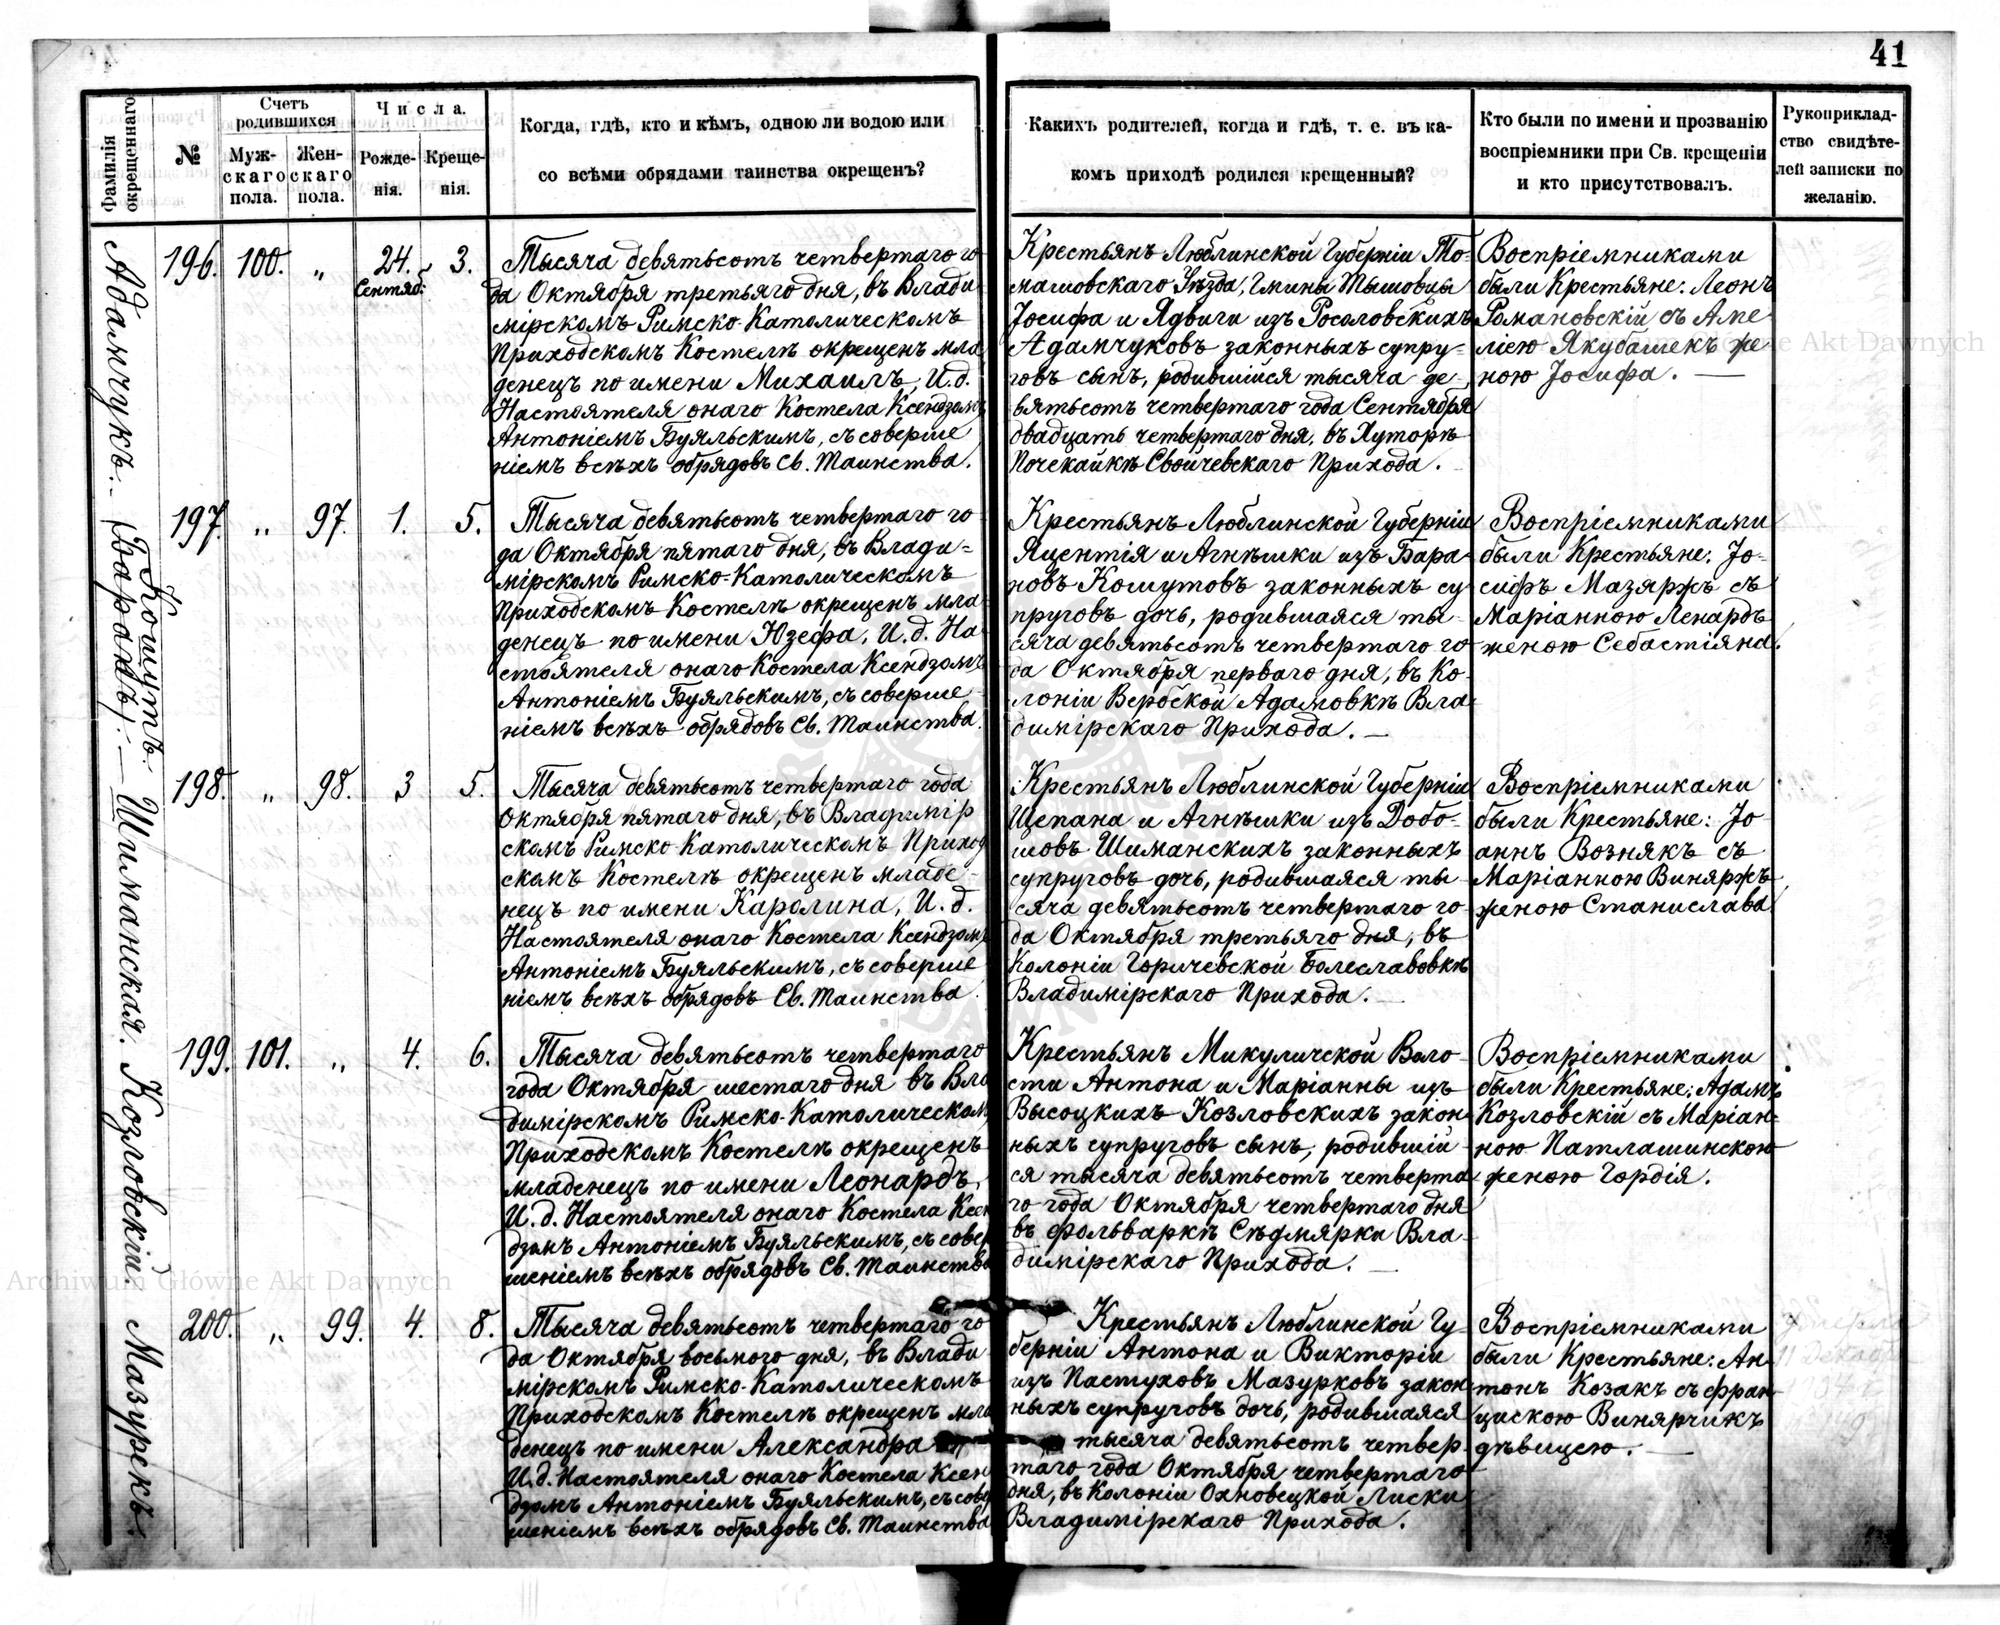 41
Фамилія окрещеннаго
№
Счетъ родившихся
Муж-скаго пола.
Жен-скаго пола.
Числа.
Рожде-нія.
Креще-нія.
Когда, гдѣ, кто и кѣмъ, одною ли водою или
со всѣми обрядами таинства окрещенъ?
Какихъ родителей, когда и гдѣ, т. е. въ ка-
комъ приходѣ родился крещенный?
Кто были по имени и прозванію
воспріемники при Св. крещеніи
и кто присутствовалъ.
Рукоприклад-
ство свидѣте-
лей записки по
желанію.
Адамчукъ.
196. 100. „ 24. Сентяб. 3.
Тысяча девятьсотъ четвертаго го-
да Октября третьяго дня, въ Влади-
мірскомъ Римско-Католическомъ
Приходскомъ Костелѣ окрещенъ мла
денецъ по имени Михаилъ, И.д.
Настоятеля онаго Костела Ксендзомъ
Антоніемъ Буяльскимъ, съ соверше
ніемъ всѣхъ обрядовъ Св. Таинства.
Крестьянъ Люблинской Губерніи То-
машовскаго Уѣзда, Гмины Тышовцы
Іосифа и Ядвиги изъ Росоловскихъ
Адамчуковъ законныхъ супру-
говъ сынъ, родившійся тысяча де-
вятьсотъ четвертаго года Сентября
двадцать четвертаго дня, въ Хуторѣ
Почекайкѣ Свойчевскаго Прихода.
Воспріемниками
были Крестьяне: Леонъ
Романовскій съ Аме
ліею Якубашекъ же
ною Іосифа.
Кошутъ (Баранъ).
197. „ 97. 1. 5.
Тысяча девятьсотъ четвертаго го
да Октября пятаго дня, въ Влади-
мірскомъ Римско-Католическомъ
Приходскомъ Костелѣ окрещенъ мла-
денецъ по имени Юзефа, И.д. На
стоятеля онаго Костела Ксендзомъ
Антоніемъ Буяльскимъ, съ соверше-
ніемъ всѣхъ обрядовъ Св. Таинства.
Крестьянъ Люблинской Губерніи
Яцентія и Агнѣшки изъ Бара-
новъ Кошутовъ законныхъ су
пруговъ дочь, родившаяся ты-
сяча девятьсотъ четвертаго го-
да Октября перваго дня, въ Ко-
лоніи Вербской Адамовкѣ Вла-
димірскаго Прихода.
Воспріемниками
были Крестьяне: Іо-
сифъ Мазяржъ съ
Маріанною Ленардъ
женою Себастіяна.
Шиманская.
198. „ 98. 3 5.
Тысяча девятьсотъ четвертаго года
Октября пятаго дня, въ Владимір
скомъ Римско-Католическомъ Приход
скомъ Костелѣ окрещенъ младе-
нецъ по имени Каролина, И.д.
Настоятеля онаго Костела Ксендзомъ
Антоніемъ Буяльскимъ, съ соверше
ніемъ всѣхъ обрядовъ Св. Таинства.
Крестьянъ Люблинской Губерніи
Щепана и Агнѣшки изъ Добо-
шовъ Шиманскихъ законныхъ
супруговъ дочь, родившаяся ты
сяча девятьсотъ четвертаго го-
да Октября третьяго дня, въ
Колоніи Горичевской Болеславовкѣ
Владимірскаго Прихода.
Воспріемниками
были Крестьяне: Іо
аннъ Вознякъ съ
Маріанною Виняржъ
женою Станислава.
Козловскій
199. 101. „ 4. 6.
Тысяча девятьсотъ четвертаго
года Октября шестаго дня въ Вла
димірскомъ Римско-Католическомъ
Приходскомъ Костелѣ окрещенъ
младенецъ по имени Леонардъ,
И.д. Настоятеля онаго Костела Ксен
дзомъ Антоніемъ Буяльскимъ, съ совер
шеніемъ всѣхъ обрядовъ Св. Таинства
Крестьянъ Микуличской Воло-
сти Антона и Маріанны изъ
Высоцкихъ Козловскихъ закон-
ныхъ супруговъ сынъ, родившій
ся тысяча девятьсотъ четверта
го года Октября четвертаго дня
въ фольваркѣ Сѣдмярка Вла-
димірскаго Прихода.
Воспріемниками
были Крестьяне: Адамъ
Козловскій съ Маріан-
ною Патлашинскою
женою Гордія.
Мазурекъ.
200. „ 99. 4. 8.
Тысяча девятьсотъ четвертаго го
да Октября восьмого дня, въ Влади
мірскомъ Римско-Католическомъ
Приходскомъ Костелѣ окрещенъ мла
денецъ по имени Александра
И.д. Настоятеля онаго Костела Ксен
дзомъ Антоніемъ Буяльскимъ, съ совер
шеніемъ всѣхъ обрядовъ Св. Таинства
Крестьянъ Люблинской Гу-
берніи Антона и Викторіи
изъ Пастуховъ Мазурковъ закон
ныхъ супруговъ дочь, родившаяся
тысяча девятьсотъ четвер
таго года Октября четвертаго
дня, въ Колоніи Охновецкой Лиски
Владимірскаго Прихода.
Воспріемниками
были Крестьяне: Ан-
тонъ Козакъ съ Фран-
цискою Винярчикъ
дѣвицею.
Archiwum Główne Akt Dawnych